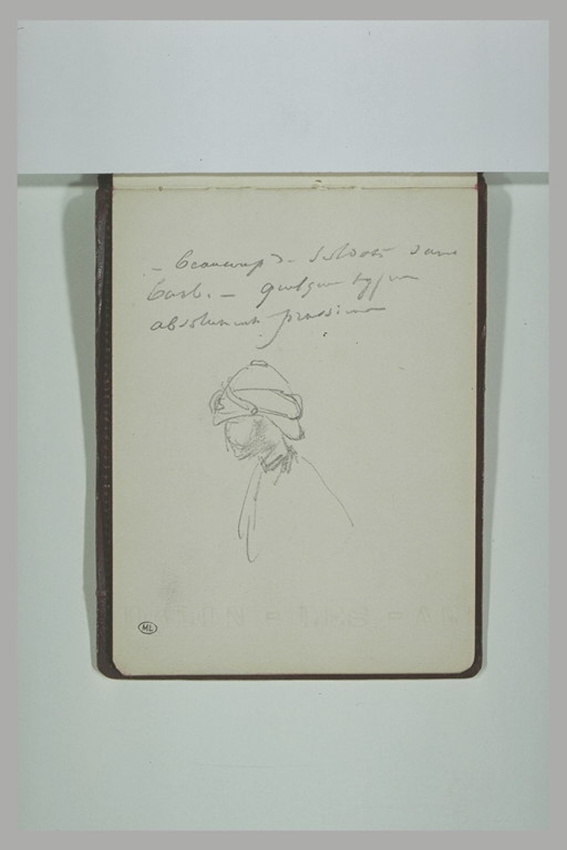 - Beaucoup de soldats sans
barbe. - quelques types
absolument prussiens
ML